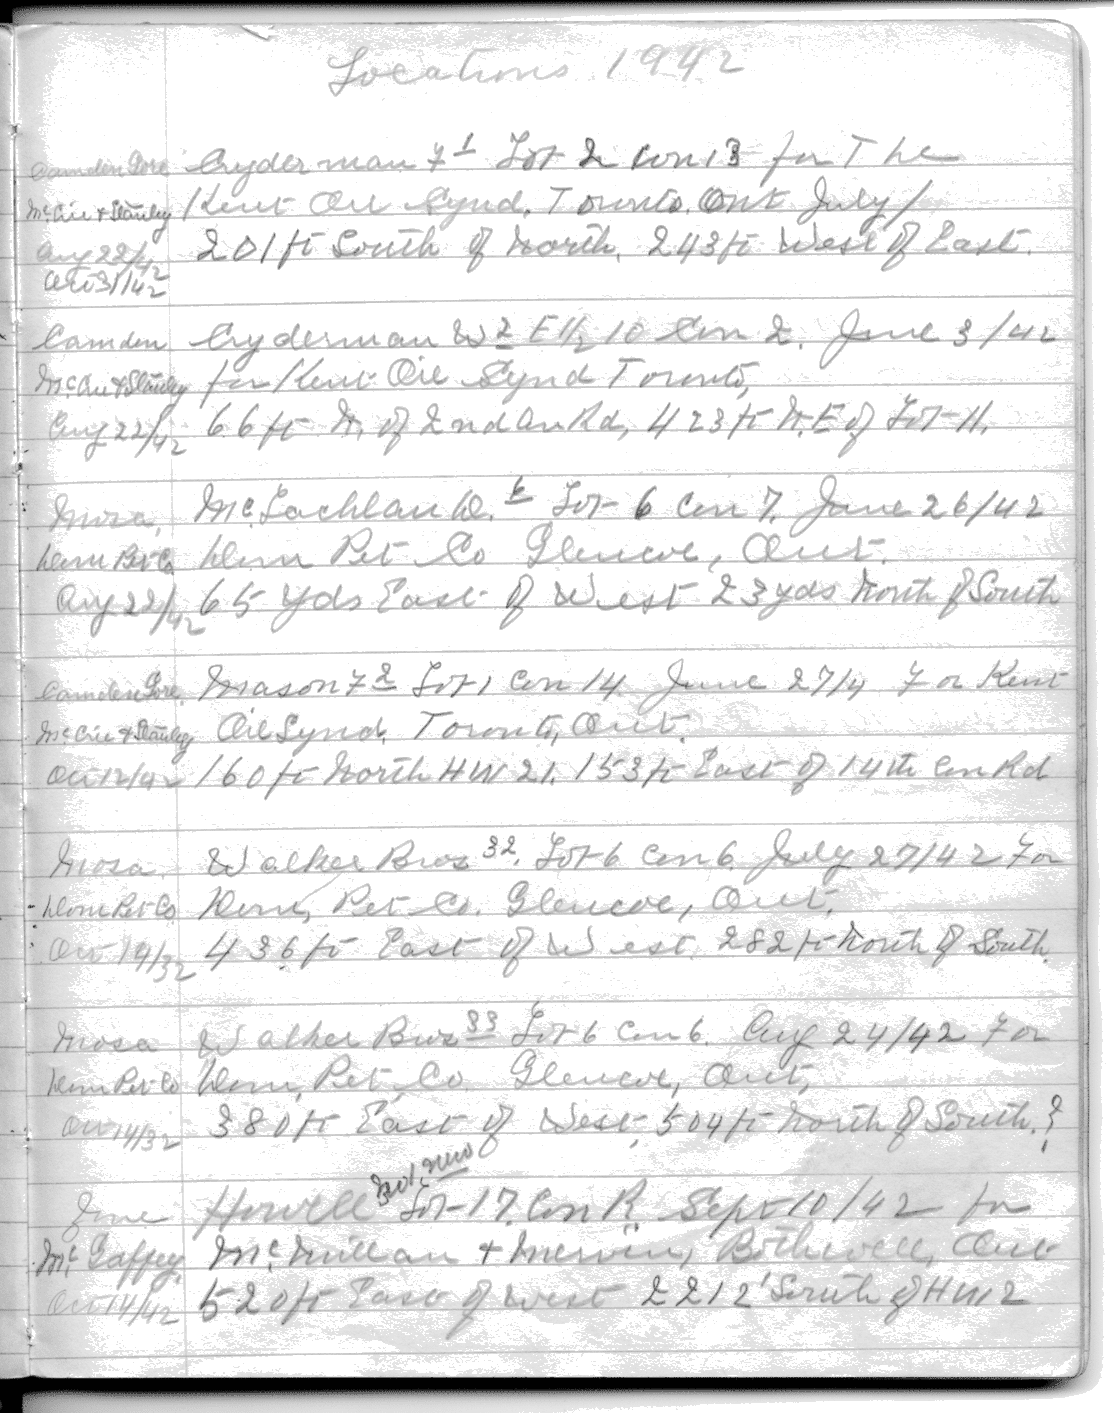 Locations 1942
Camden Gore Cryderman 7 1 Lot 2 Con 13 for The
McCrie & Stanley Kent Oil Synd. Toronto. Ont July /
Aug 22/42 201 ft South of North. 243 ft West of East.
Oct 31/42
Camden Cryderman W 2 E 1/2 10 Con 2. June 3/42
McCrie & Stanley for Kent Oil Synd Toronto,
Aug 22/42 66 ft N. of 2nd Con Rd, 423 ft N.E of Lot 11.
Mosa, McLachlan D. 6 Lot 6 Con 7. June 26/42
Dom Pet Co Dom Pet Co Glencoe, Ont.
Aug 22/42 65 yds East of West 23 yds North of South
Camden Gore. Mason 7 2 Lot 1 Con 14 June 27/4 For Kent
McCrie & Stanley Oil Synd. Toronto, Ont.
Oct 12/42 160 ft North HW 21. 153 ft East of 14th Con Rd
Mosa. Walker Bros 32. Lot 6 Con 6. July 27/42 For
Dom Pet Co. Dom, Pet. Co. Glencoe, Ont.
Oct 14/32 436 ft East of West. 282 ft North of South.
Mosa Walker Bros 33 Lot 6 Con 6. Aug 24/42 For
Dom Pet Co Dom, Pet. Co. Glencoe, Ont,
Oct 14/32 380 ft East of West, 504 ft North of South.?
Zone Howell No 1, New Lot 17. Con R. Sept 10/42 for
McGaffey. McMillan & Mervin, Bothwell, Ont
Oct 14/42 520 ft East of West 2212' South of HW 2